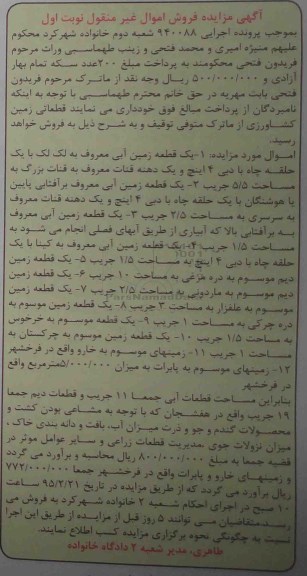 آگهی مزایده فروش اموال غیر منقول نوبت اول
بموجب پرونده اجرایی ۹۴۰۰۸۸ شعبه دوم خانواده شهرکرد محکوم
علیهم منیژه امیری و محمد فتحی و زینب طهماسبی وراث مرحوم
فریدون فتحی محکومند به پرداخت مبلغ ۲۰۰عدد سکه تمام بهار
آزادی و ۵۰۰/۰۰۰/۰۰۰ ریال وجه نقد از ماترک مرحوم فریدون
فتحی بابت مهریه در حق خانم محترم طهماسبی با توجه به اینکه
نامبردگان از پرداخت مبالغ فوق خودداری می نمایند قطعاتی زمین
کشاورزی از ماترک متوفی توقیف و به شرح ذیل به فروش خواهد
رسید.
اموال مورد مزایده: ۱-یک قطعه زمین آبی معروف به لک لک با یک
حلقه چاه با دبی ۴ اینچ و یک دهنه قنات معروف به قنات بزرگ به
مساحت ۵/۵ جریب ۲- یک قطعه زمین آبی معروف برآفتابی پایین
با هوشنگان با یک حلقه چاه با دبی ۴ اینچ و یک دهنه قنات معروف
به سرسری به مساحت ۲/۵ جریب ۳- یک قطعه زمین آبی معروف
به برآفتابی بالا که آبیاری از طریق آبهای فصلی انجام می شود به
مساحت ۱/۵ جریب ۴- یک قطعه زمین آبی معروف به کینا با یک
حلقه چاه با دبی ۴ اینچ به مساحت ۱/۵ جریب ۵- یک قطعه زمین
دیم موسوم به دره مرغی به مساحت ۱۰ جریب ۶- یک قطعه زمین
دیم موسوم به ماردونی به مساحت ۲/۵ جریب ۷- یک قطعه زمین
موسوم به علفزار به مساحت ۳ جریب ۸- یک قطعه زمین موسوم به
دره چرکی به مساحت ۱ جریب ۹- یک قطعه موسوم به خرحوس
به مساحت ۱/۵ جریب ۱۰- یک قطعه زمین موسوم به چرکستان به
مساحت ۱ جریب ۱۱- زمینهای موسوم به خارو واقع در فرخشهر
۱۲- زمینهای موسوم به پابرات به میزان ۵/۰۰۰/۰۰۰مترمربع واقع
در فرخشهر
بنابراین مساحت قطعات آبی جمعا ۱۱ جریب و قطعات دیم جمعا
۱۹ جریب واقع در هفشجان که با توجه به مشاعی بودن کشت و
محصولات گندم و جو و ذرت میزان آب، بافت و دانه بندی خاک ،
میزان نزولات جوی ،مدیریت قطعات زراعی و سایر عوامل موثر در
قضیه جمعا به مبلغ ۸۰۰/۰۰۰/۰۰۰ ریال محاسبه و برآورد می گردد
و زمینهای خارو و پابرات واقع در فرخشهر جمعا ۷۷۲/۰۰۰/۰۰۰
ریال برآورد می گردد که از طریق مزایده در تاریخ ۹۵/۲/۲۱ ساعت
۱۰ صبح در اجرای احکام شعبه ۲ خانواده شهرکرد به فروش می
رسد.متقاضیان می توانند ۵ روز قبل از مزایده از طریق این اجرا
نسبت به چگونگی نحوه برگزاری مزایده کسب اطلاع نمایند.
طاهری، مدیر شعبه ۲ دادگاه خانواده